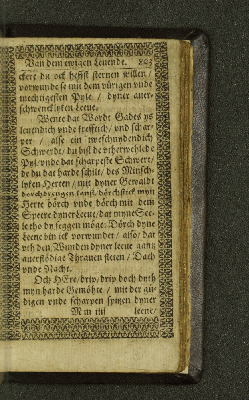 Van dem ewigen Levende. 803
ckere du ock hefft sternen willen /
vorwunde se mit dem vürigen vnde
mechtigesten Pyle / dyner auer-
schwencklyken Leeue.
Wente dat Wordt Gades ys
leuendich vnde krefftich / vnd schar-
per / alse ein tweschnydendich
Schwerdt / du bist de vtherwehlede
Pyl / vnde dat scharpeste Schwert /
de du dat harde schilt / des Minsch-
lyken Herten / mit dyner Gewaldt
dorchdringen kanst / dörchstick myn
Herte dörch vnde dörch mit dem
Speere dyner Leeue / dat myn See-
le tho dy seggen möge: Dörch dyne
Leeue bin ick vorwundet / also / dat
vth den Wunden dyner leeue gantz
auerflödige Thranen fleten / Dach
vnde Nacht.
Och HEre / driv / driv doch dörch
myn harde Gemöhte / mit der gü-
digen vnde scharpen spitzen dyner
Mm iiij leeue /